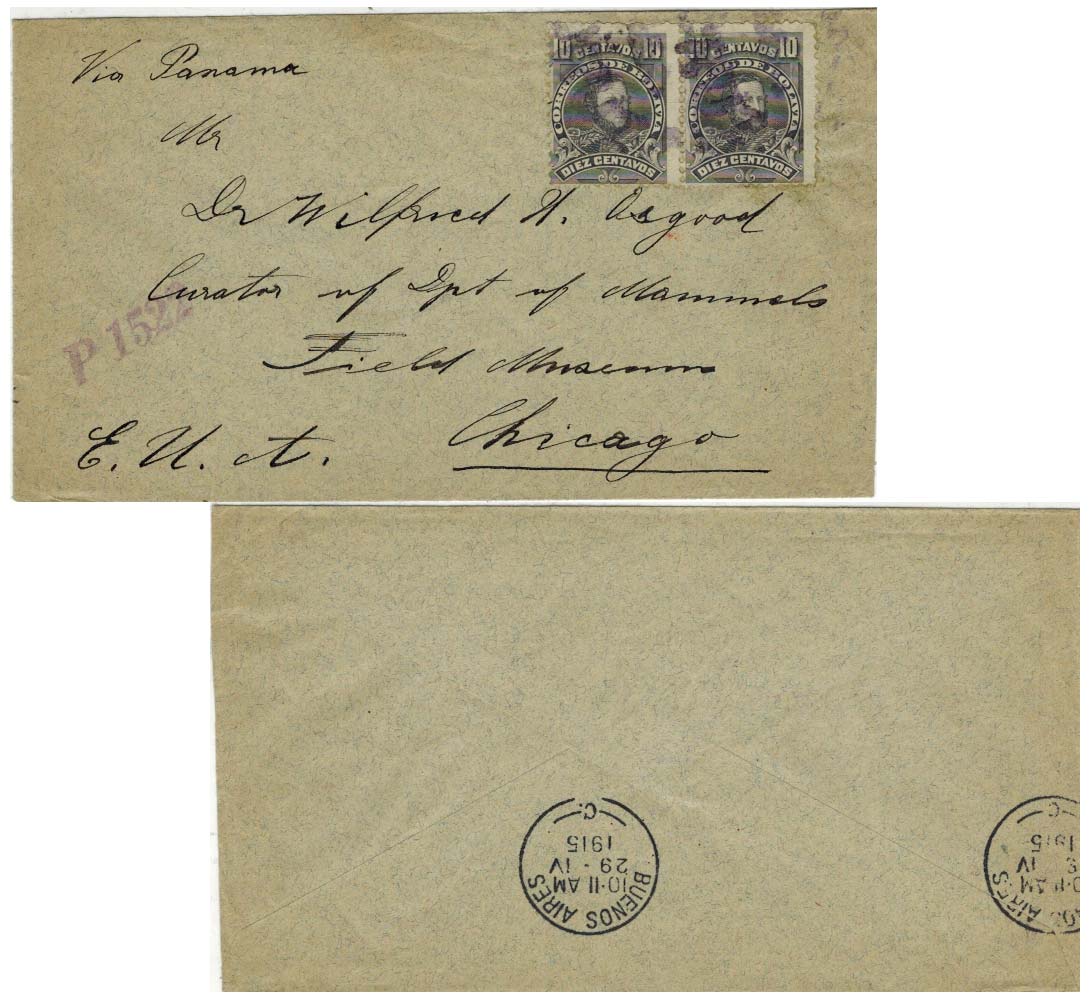 Via Panama
10 CENTAVOS 10
CORREOS DE BOLIVIA
DIEZ CENTAVOS
10 CENTAVOS 10
CORREOS DE BOLIVIA
DIEZ CENTAVOS
Mr
Dr Wilfred H. Osgood
Curator of Dpt of Mammels
Field Museum
P 1522
E. U. A.
Chicago
BUENOS AIRES
10-11 AM
29 - IV
1915
C.
AIRES
11 AM
IV
C